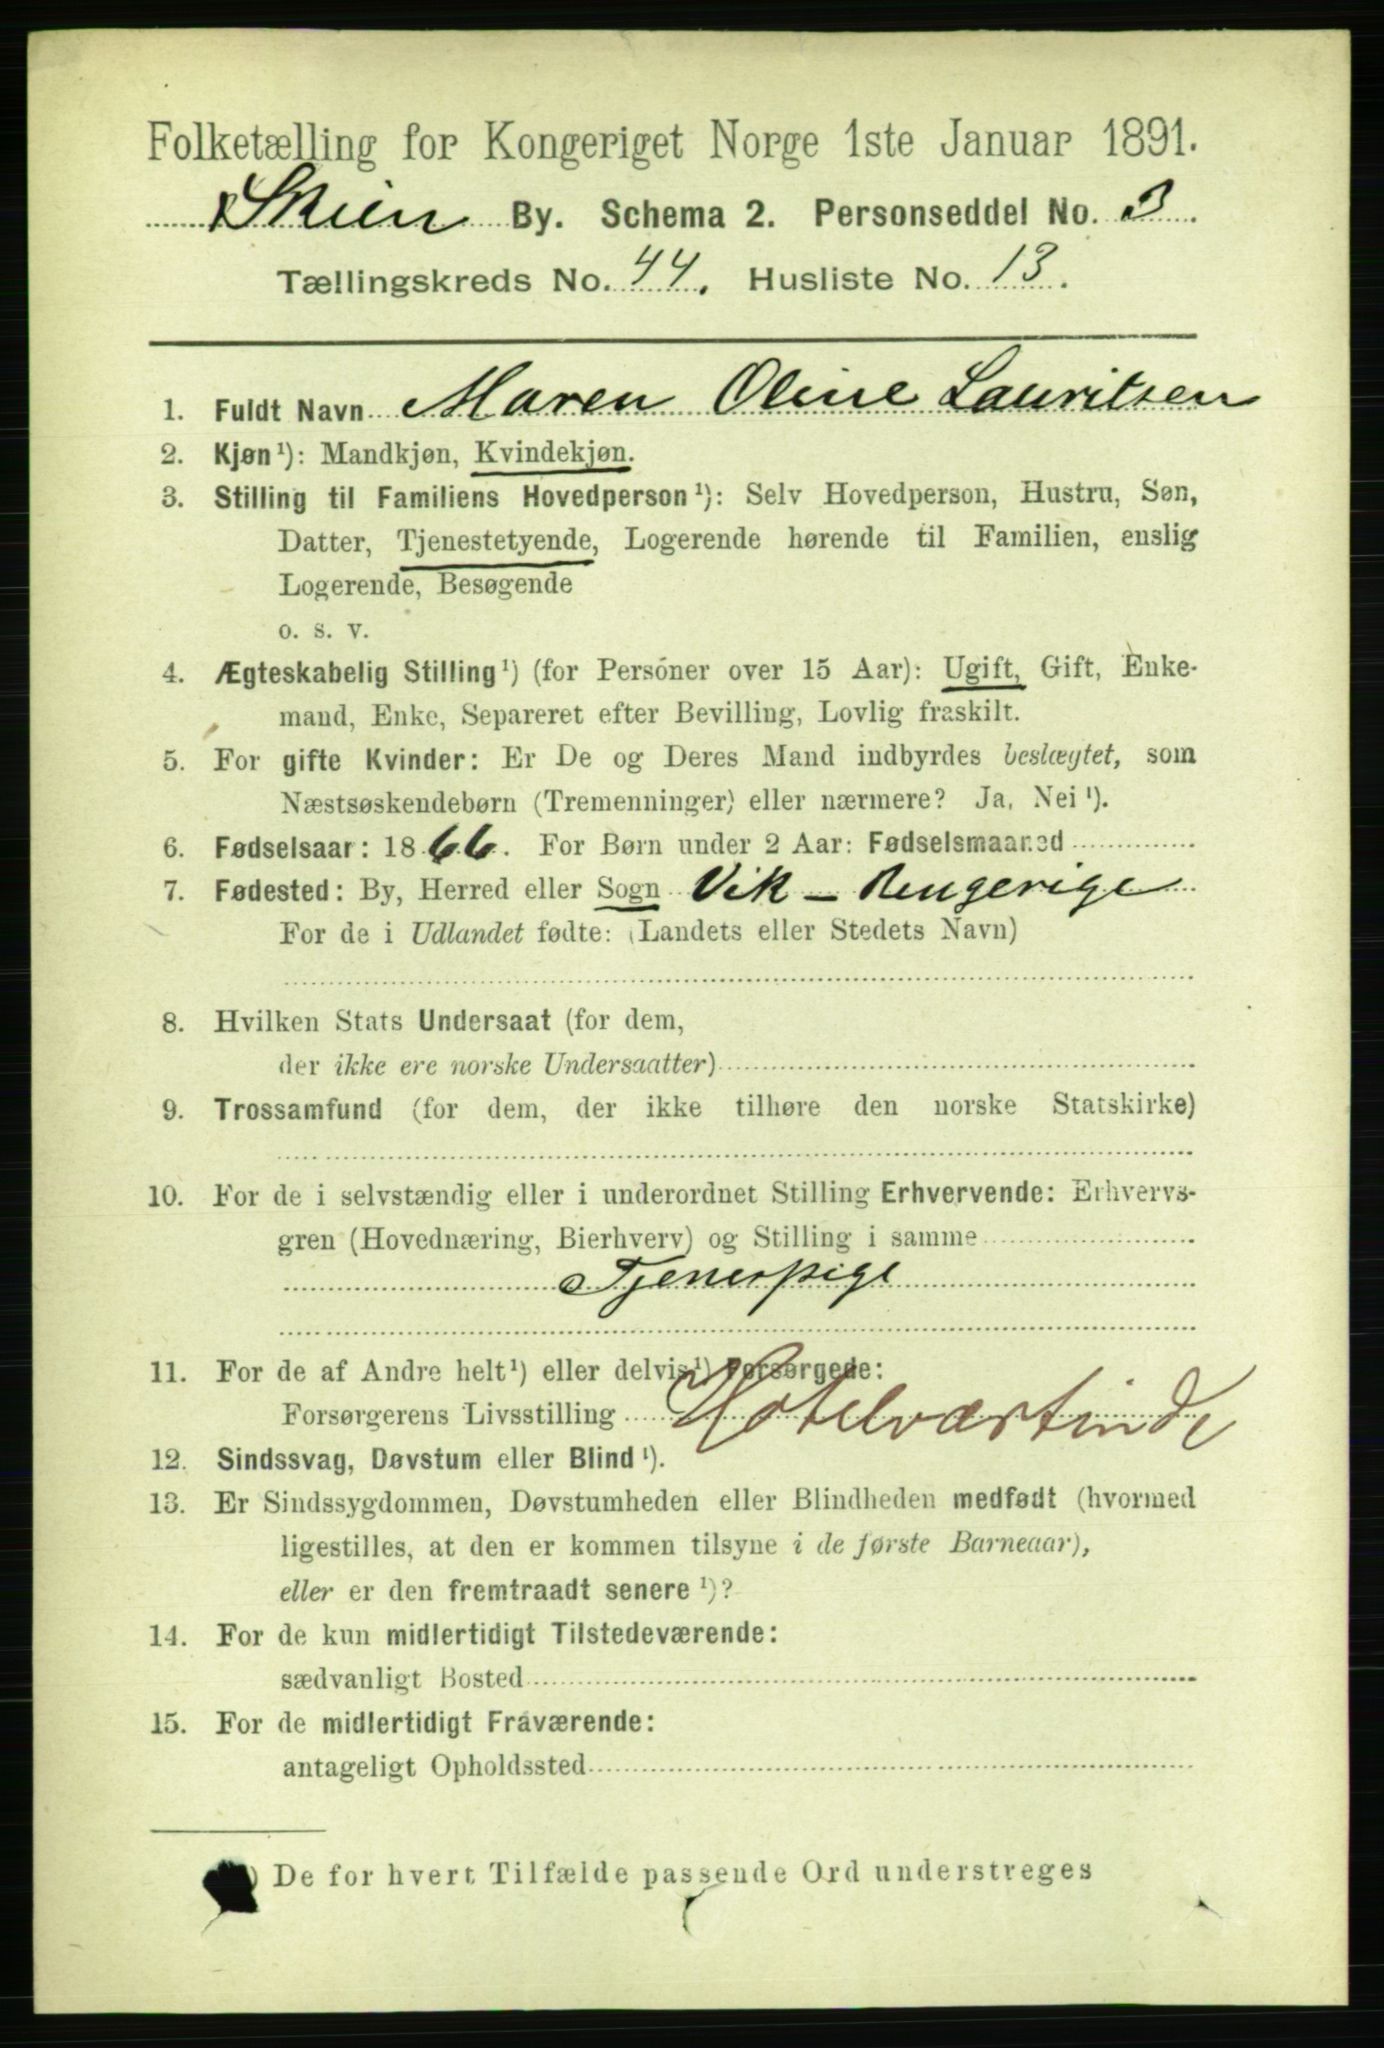 Folketælling for Kongeriget Norge 1ste Januar 1891.
Skien By. Schema 2. Personseddel No. 3.
Tællingskreds No. 44. Husliste No. 13.
1. Fuldt Navn Maren Oline Lauritsen
2. Kjøn ¹): Mandkjøn, Kvindekjøn.
3. Stilling til Familiens Hovedperson ¹): Selv Hovedperson, Hustru, Søn,
Datter, Tjenestetyende, Logerende hørende til Familien, enslig
Logerende, Besøgende
o. s. v.
4. Ægteskabelig Stilling ¹) (for Personer over 15 Aar): Ugift, Gift, Enke-
mand, Enke, Separeret efter Bevilling, Lovlig fraskilt.
5. For gifte Kvinder: Er De og Deres Mand indbyrdes beslægtet, som
Næstsøskendebørn (Tremenninger) eller nærmere? Ja, Nei ¹).
6. Fødselsaar: 1866. For Børn under 2 Aar: Fødselsmaaned
7. Fødested: By, Herred eller Sogn Vik – Rengerige
For de i Udlandet fødte: (Landets eller Stedets Navn)
8. Hvilken Stats Undersaat (for dem,
der ikke ere norske Undersaatter)
9. Trossamfund (for dem, der ikke tilhøre den norske Statskirke)
10. For de i selvstændig eller i underordnet Stilling Erhvervende: Erhvervs-
gren (Hovednæring, Bierhverv) og Stilling i samme
Tjenerpige
11. For de af Andre helt ¹) eller delvis ¹) Forsørgede:
Forsørgerens Livsstilling Hotelværtinde
12. Sindssvag, Døvstum eller Blind ¹).
13. Er Sindssygdommen, Døvstumheden eller Blindheden medfødt (hvormed
ligestilles, at den er kommen tilsyne i de første Barneaar),
eller er den fremtraadt senere ¹)?
14. For de kun midlertidigt Tilstedeværende:
sædvanligt Bosted
15. For de midlertidigt Fraværende:
antageligt Opholdssted
) De for hvert Tilfælde passende Ord understreges